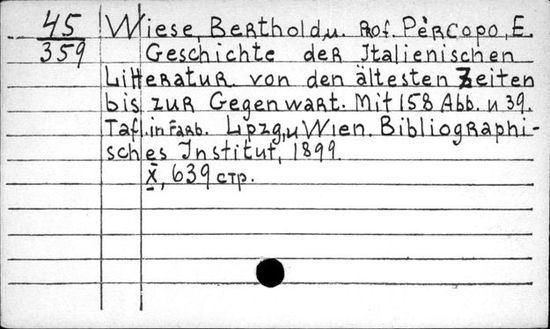 45 Wiese, Berthold u. Prof. Pèrcopo, E.
359 Geschichte der Italienischen
Litteratur von den ältesten Zeiten
bis zur Gegenwart. Mit 158 Abb. u 39.
Taf. in Farb. Lpzg, u Wien. Bibliographi-
sches Institut, 1899.
X, 639 стр.